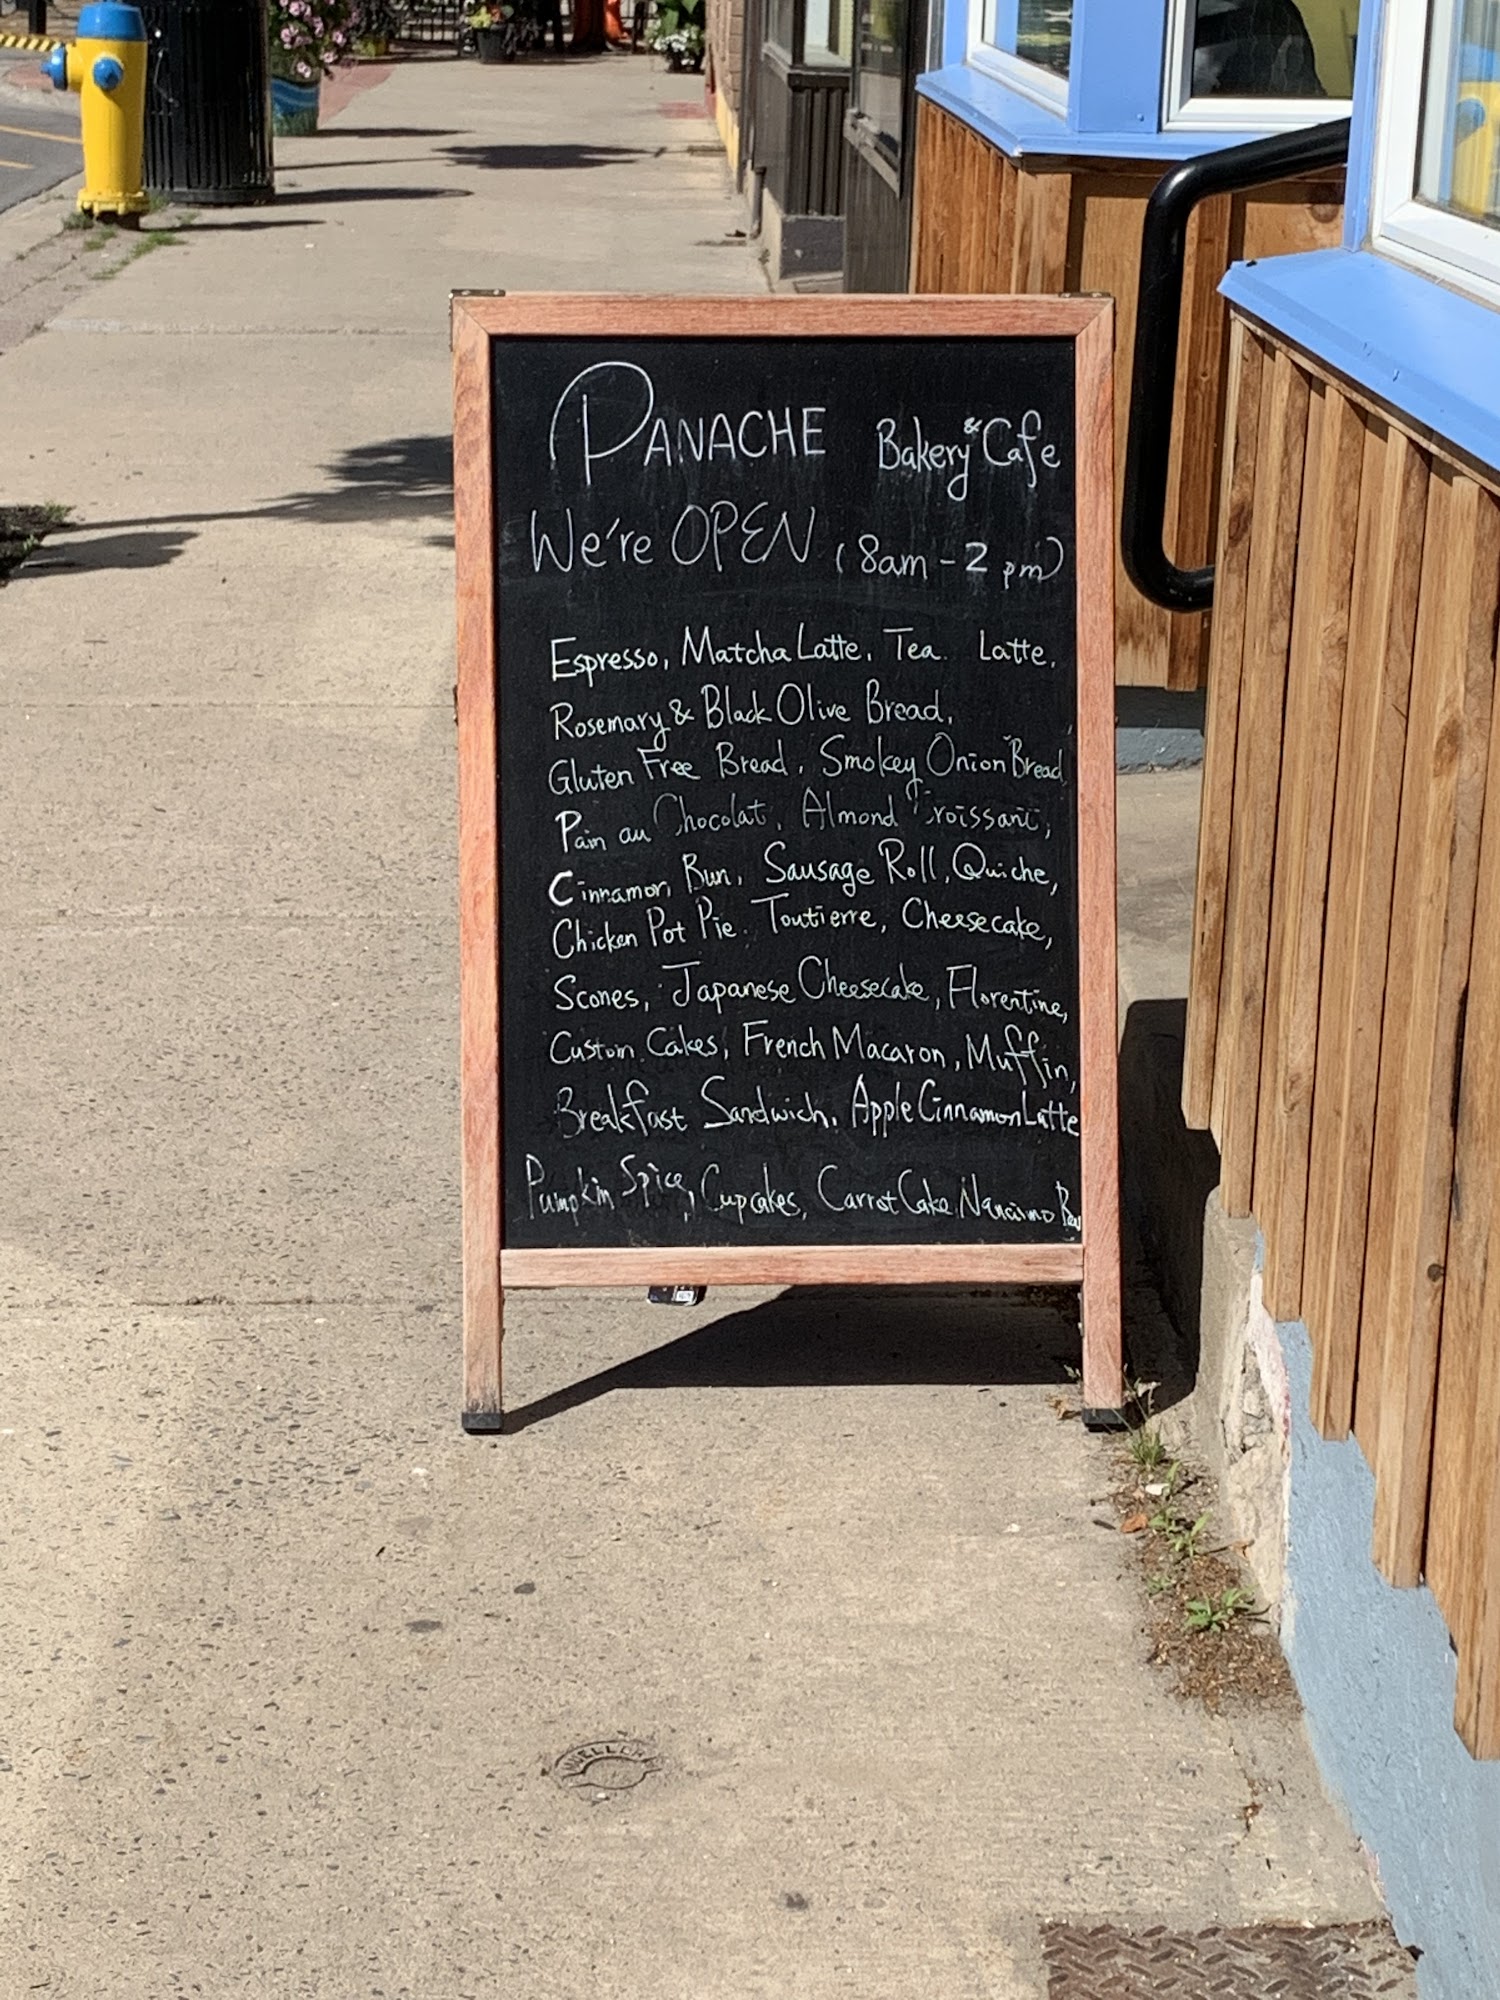 PANACHE Bakery & Cafe
We're OPEN (8am - 2 pm)
Espresso, Matcha Latte, Tea Latte,
Rosemary & Black Olive Bread,
Gluten Free Bread, Smokey Onion Bread,
Pain au Chocolat, Almond Croissant,
Cinnamon Bun, Sausage Roll, Quiche,
Chicken Pot Pie, Toutierre, Cheesecake,
Scones, Japanese Cheesecake, Florentine,
Custom Cakes, French Macaron, Muffin,
Breakfast Sandwich, Apple Cinnamon Latte
Pumpkin Spice, Cupcakes, Carrot Cake,